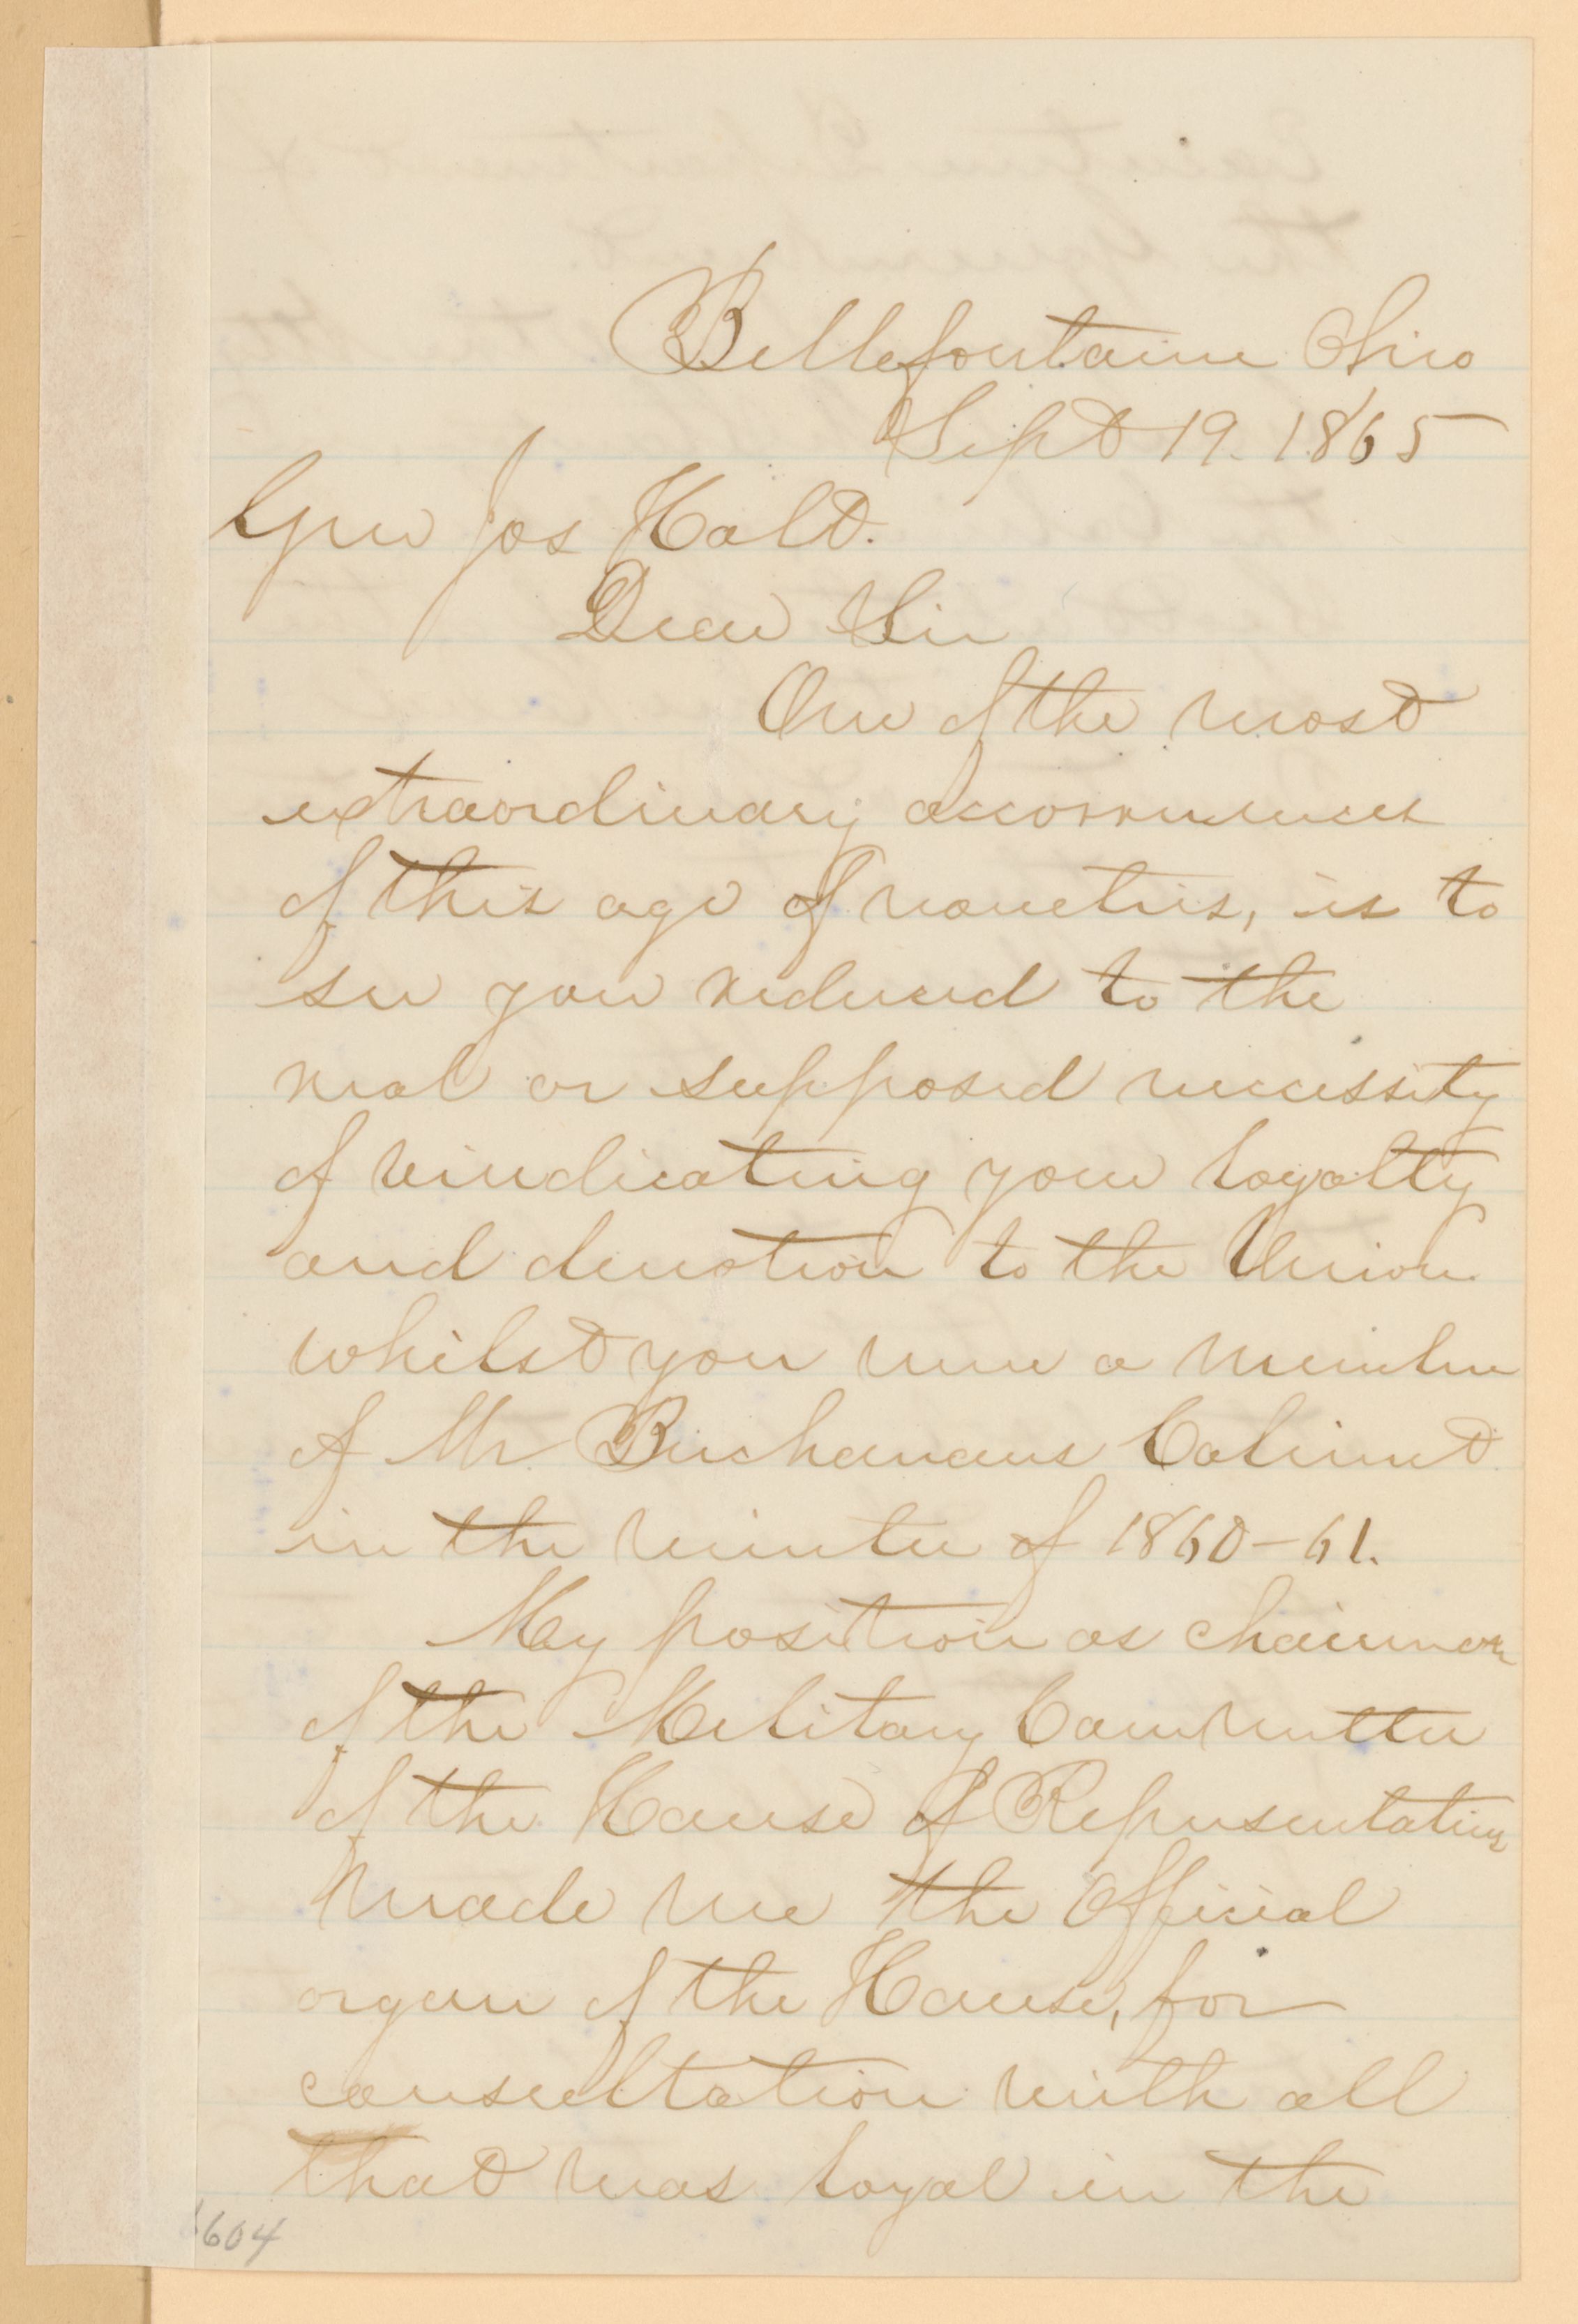 Bellefontaine Ohio
Sept 19. 1865
Gen Jos Holt.
Dear Sir
One of the most
extraordinary occorrences
of this age of novelties, is to
see you reduced to the
real or supposed necessity
of vindicating your loyalty
and devotion to the Union
whilst you were a member
of Mr Buchanans Cabinet
in the winter of 1860-61.
My position as chairman
of the Military Committee
of the House of Representatives
made me the official
organ of the House, for
consultation with all
that was loyal in the
604